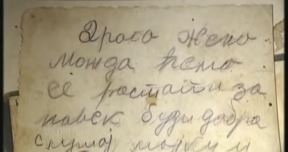 Драга жено
можда ћемо
се растати за
навек буди добра
слушај мајку и